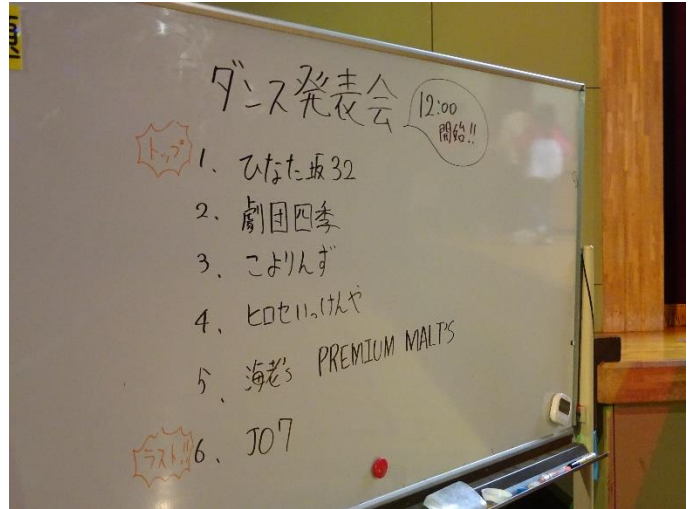 ダンス発表会
12:00
開始!!
トップ
1. ひなた坂32
2. 劇団四季
3. こよりんず
4. ヒロセいっけんや
5. 海老's PREMIUM MALT'S
ラスト!!
6. JO7